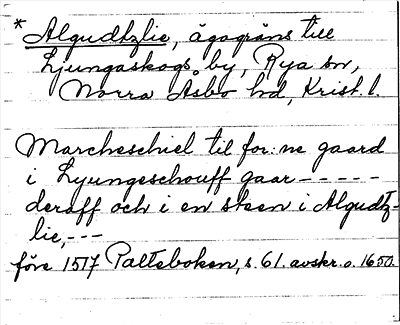 * Algudtzlie, ägogräns till
Ljungaskogs by, Rya sn,
Norra Åsbo hd, Krist. l.
Marcheschiel til for:ne gaard
i Lyungeschouff gaar - - - - -
deraff och i en steen i Algudtz-
lie, - - -
före 1517 Palteboken, s. 61. avskr. o. 1650.